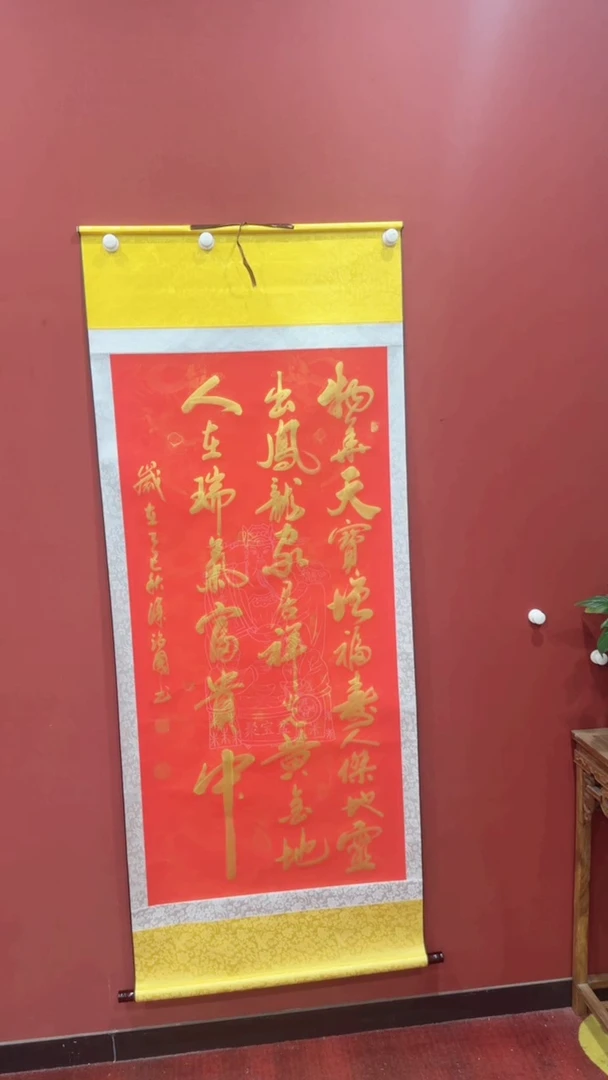 物華天寶增福壽人傑地靈
出鳳龍家居祥光黃金地
人在瑞氣富貴中
歲在乙巳秋 治國書